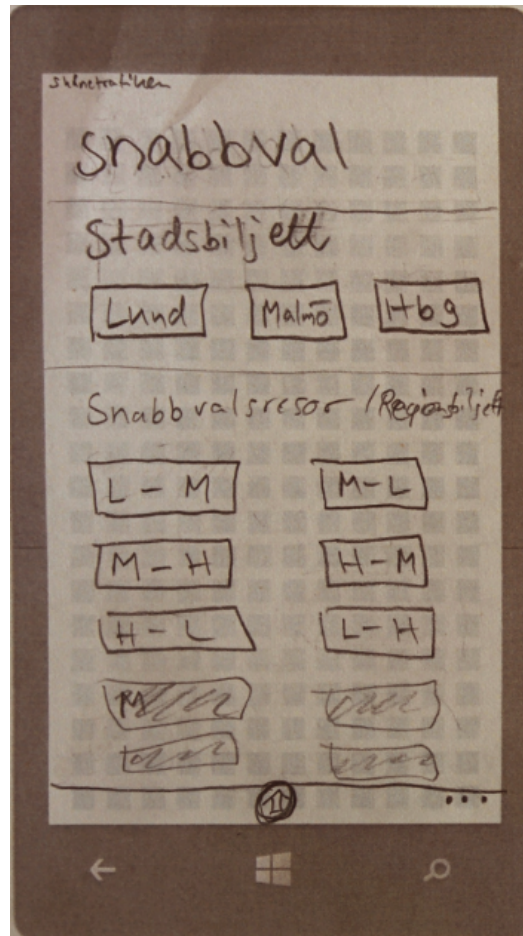 skånetrafiken
Snabbval
Stadsbiljett
Lund Malmö Hbg
Snabbvalsresor / Regionsbiljett
L – M M – L
M – H H – M
H – L L – H
M